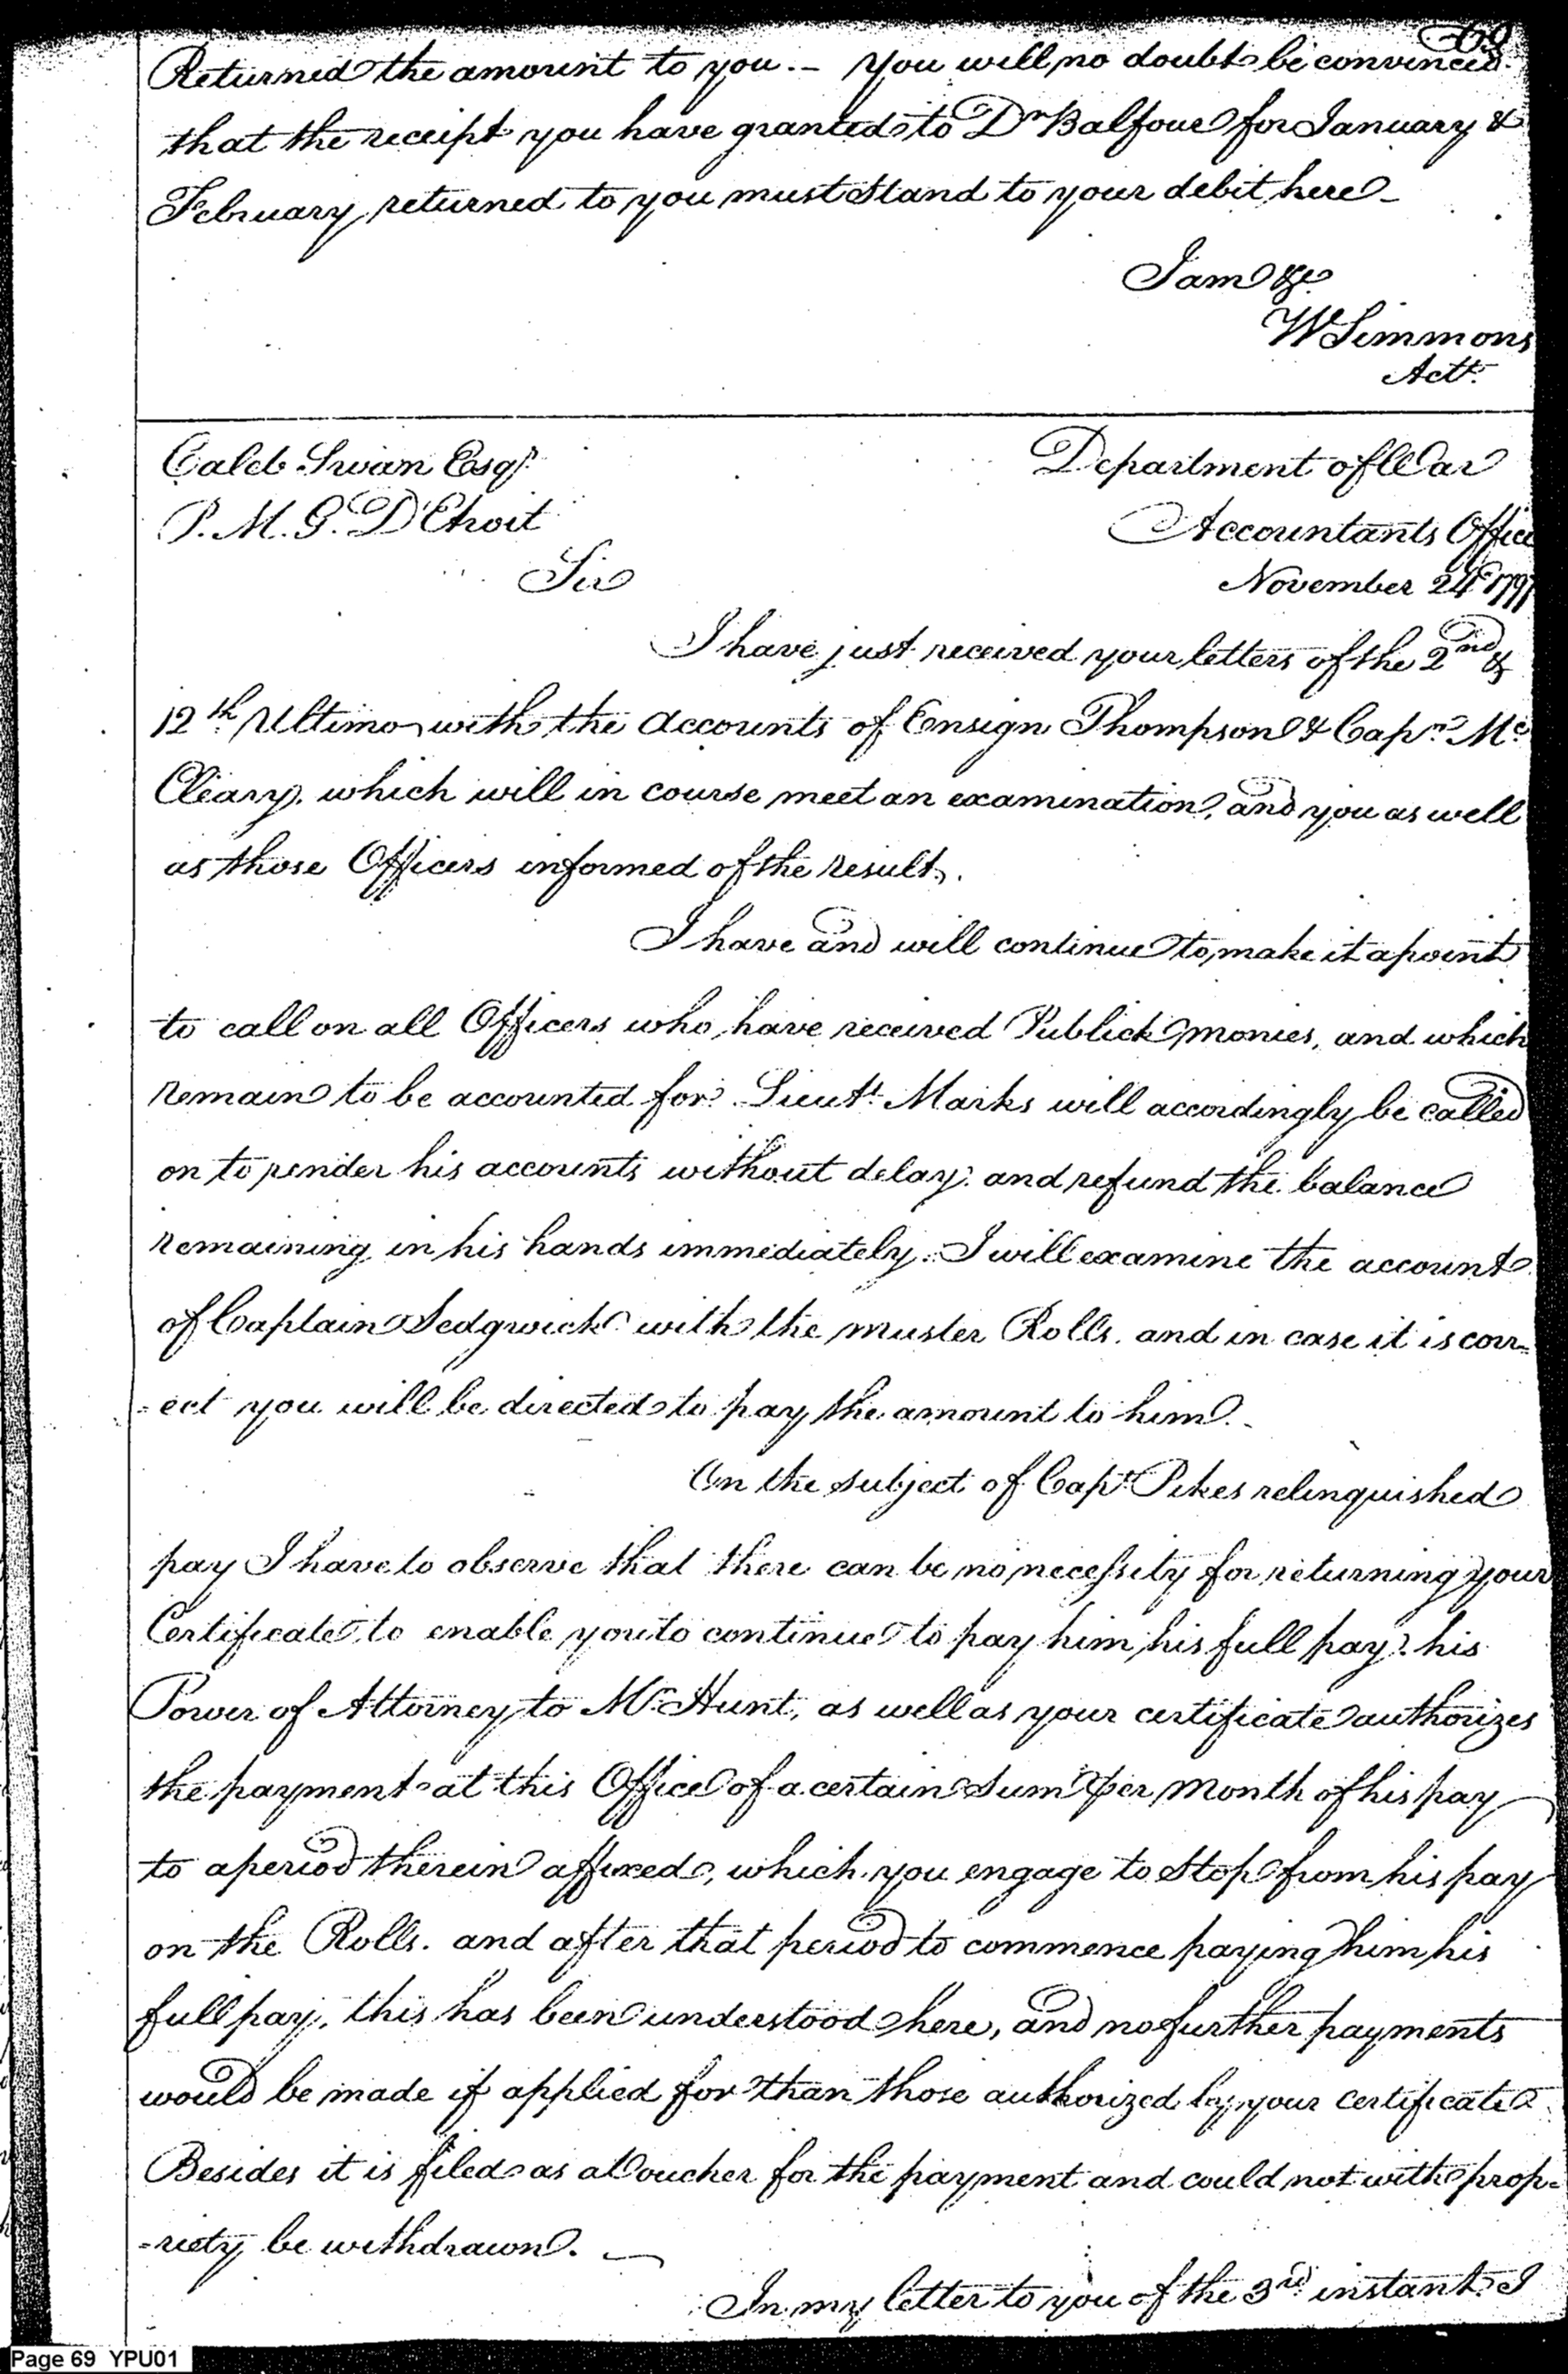 69
Returned the amount to you. – You will no doubt be convinced
that the receipt you have granted to Dr Balfour for January &
February returned to you must Stand to your debit here –
I am &c.
W Simmons
Actt.
Caleb Swan Esqr.
Department of War
P. M. G. D'Etroit
Accountants Office
Sir
November 24th 1797
I have just received your letters of the 2nd &
12th. Ultimo with the Accounts of Ensign Thompson & Capn. Mc.
Cleary, which will in course meet an examination, and you as well
as those Officers informed of the result.
I have and will continue to make it a point
to call on all Officers who have received Publick monies, and which
remain to be accounted for. Lieutt. Marks will accordingly be called
on to render his accounts without delay. and refund the balance
remaining in his hands immediately. I will examine the account
of Captain Sedgwick with the muster Rolls. and in case it is corr=
=ect you will be directed to pay the amount to him. –
On the subject of Capt. Pikes relinquished
pay I have to observe that there can be no necessity for returning your
Certificate, to enable you to continue to pay him his full pay. his
Power of Attorney to Mr. Hunt, as well as your certificate authorizes
the payment at this Office of a certain Sum per Month of his pay
to a period therein affixed, which you engage to Stop from his pay
on the Rolls. and after that period to commence paying him his
full pay, this has been understood here, and no further payments
would be made if applied for than those authorized by your certificate
Besides it is filed as a Voucher for the payment and could not with prop=
=riety be withdrawn. —
In my letter to you of the 3rd instant I
Page 69 YPU01